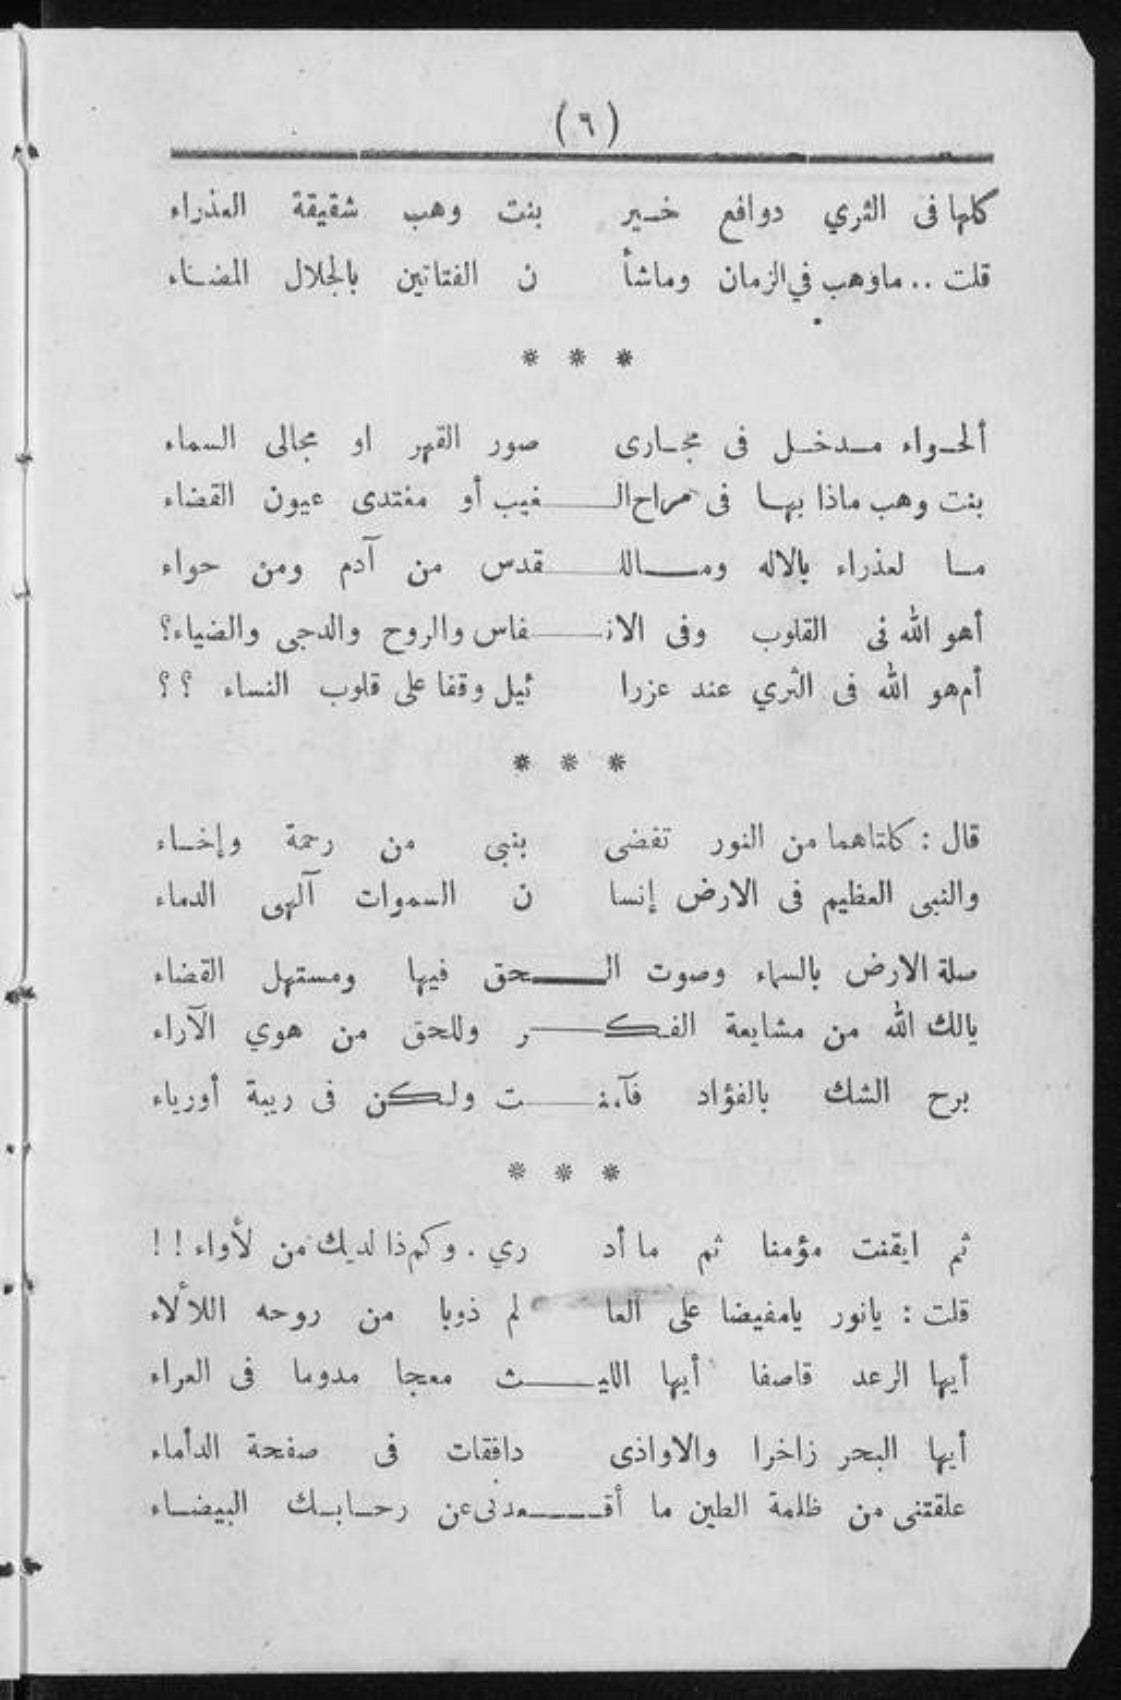 (٦)
كلها فى الثري دوافع خير بنت وهب شقيقة العذراء
قلت .. ماوهب في الزمان وماشأ ن الفتاتين بالجلال المضاء
* * *
ألحواء مدخل فى مجارى صور القهر او مجالى السماء
بنت وهب ماذا بها فى مراح الغيب أو مغتدى عيون القضاء
ما لعذراء بالاله وماللقدس من آدم ومن حواء
أهو الله فى القلوب وفى الانفاس والروح والدجى والضياء؟
أم هو الله فى الثري عند عزرا ئيل وقفا على قلوب النساء ؟ ؟
* * *
قال : كلتاهما من النور تفضى بنبى من رحمة وإخاء
والنبى العظيم فى الارض إنسا ن السموات آلهى الدماء
صلة الارض بالسماء وصوت الحق فيها ومستهل القضاء
يالك الله من مشايعة الفكر وللحق من هوي الآراء
برح الشك بالفؤاد فآمنت ولكن فى ريبة أورياء
* * *
ثم ايقنت مؤمنا ثم ما أد ري . وكم ذا لديك من لأواء ! !
قلت : يانور يامفيضا على العا لم ذوبا من روحه اللألاء
أيها الرعد قاصفا أيها الليث معجا مدوما فى العراء
أيها البحر زاخرا والاواذى دافقات فى صفحة الدأماء
علقتنى من ظلمة الطين ما أقعدنى عن رحابك البيضاء